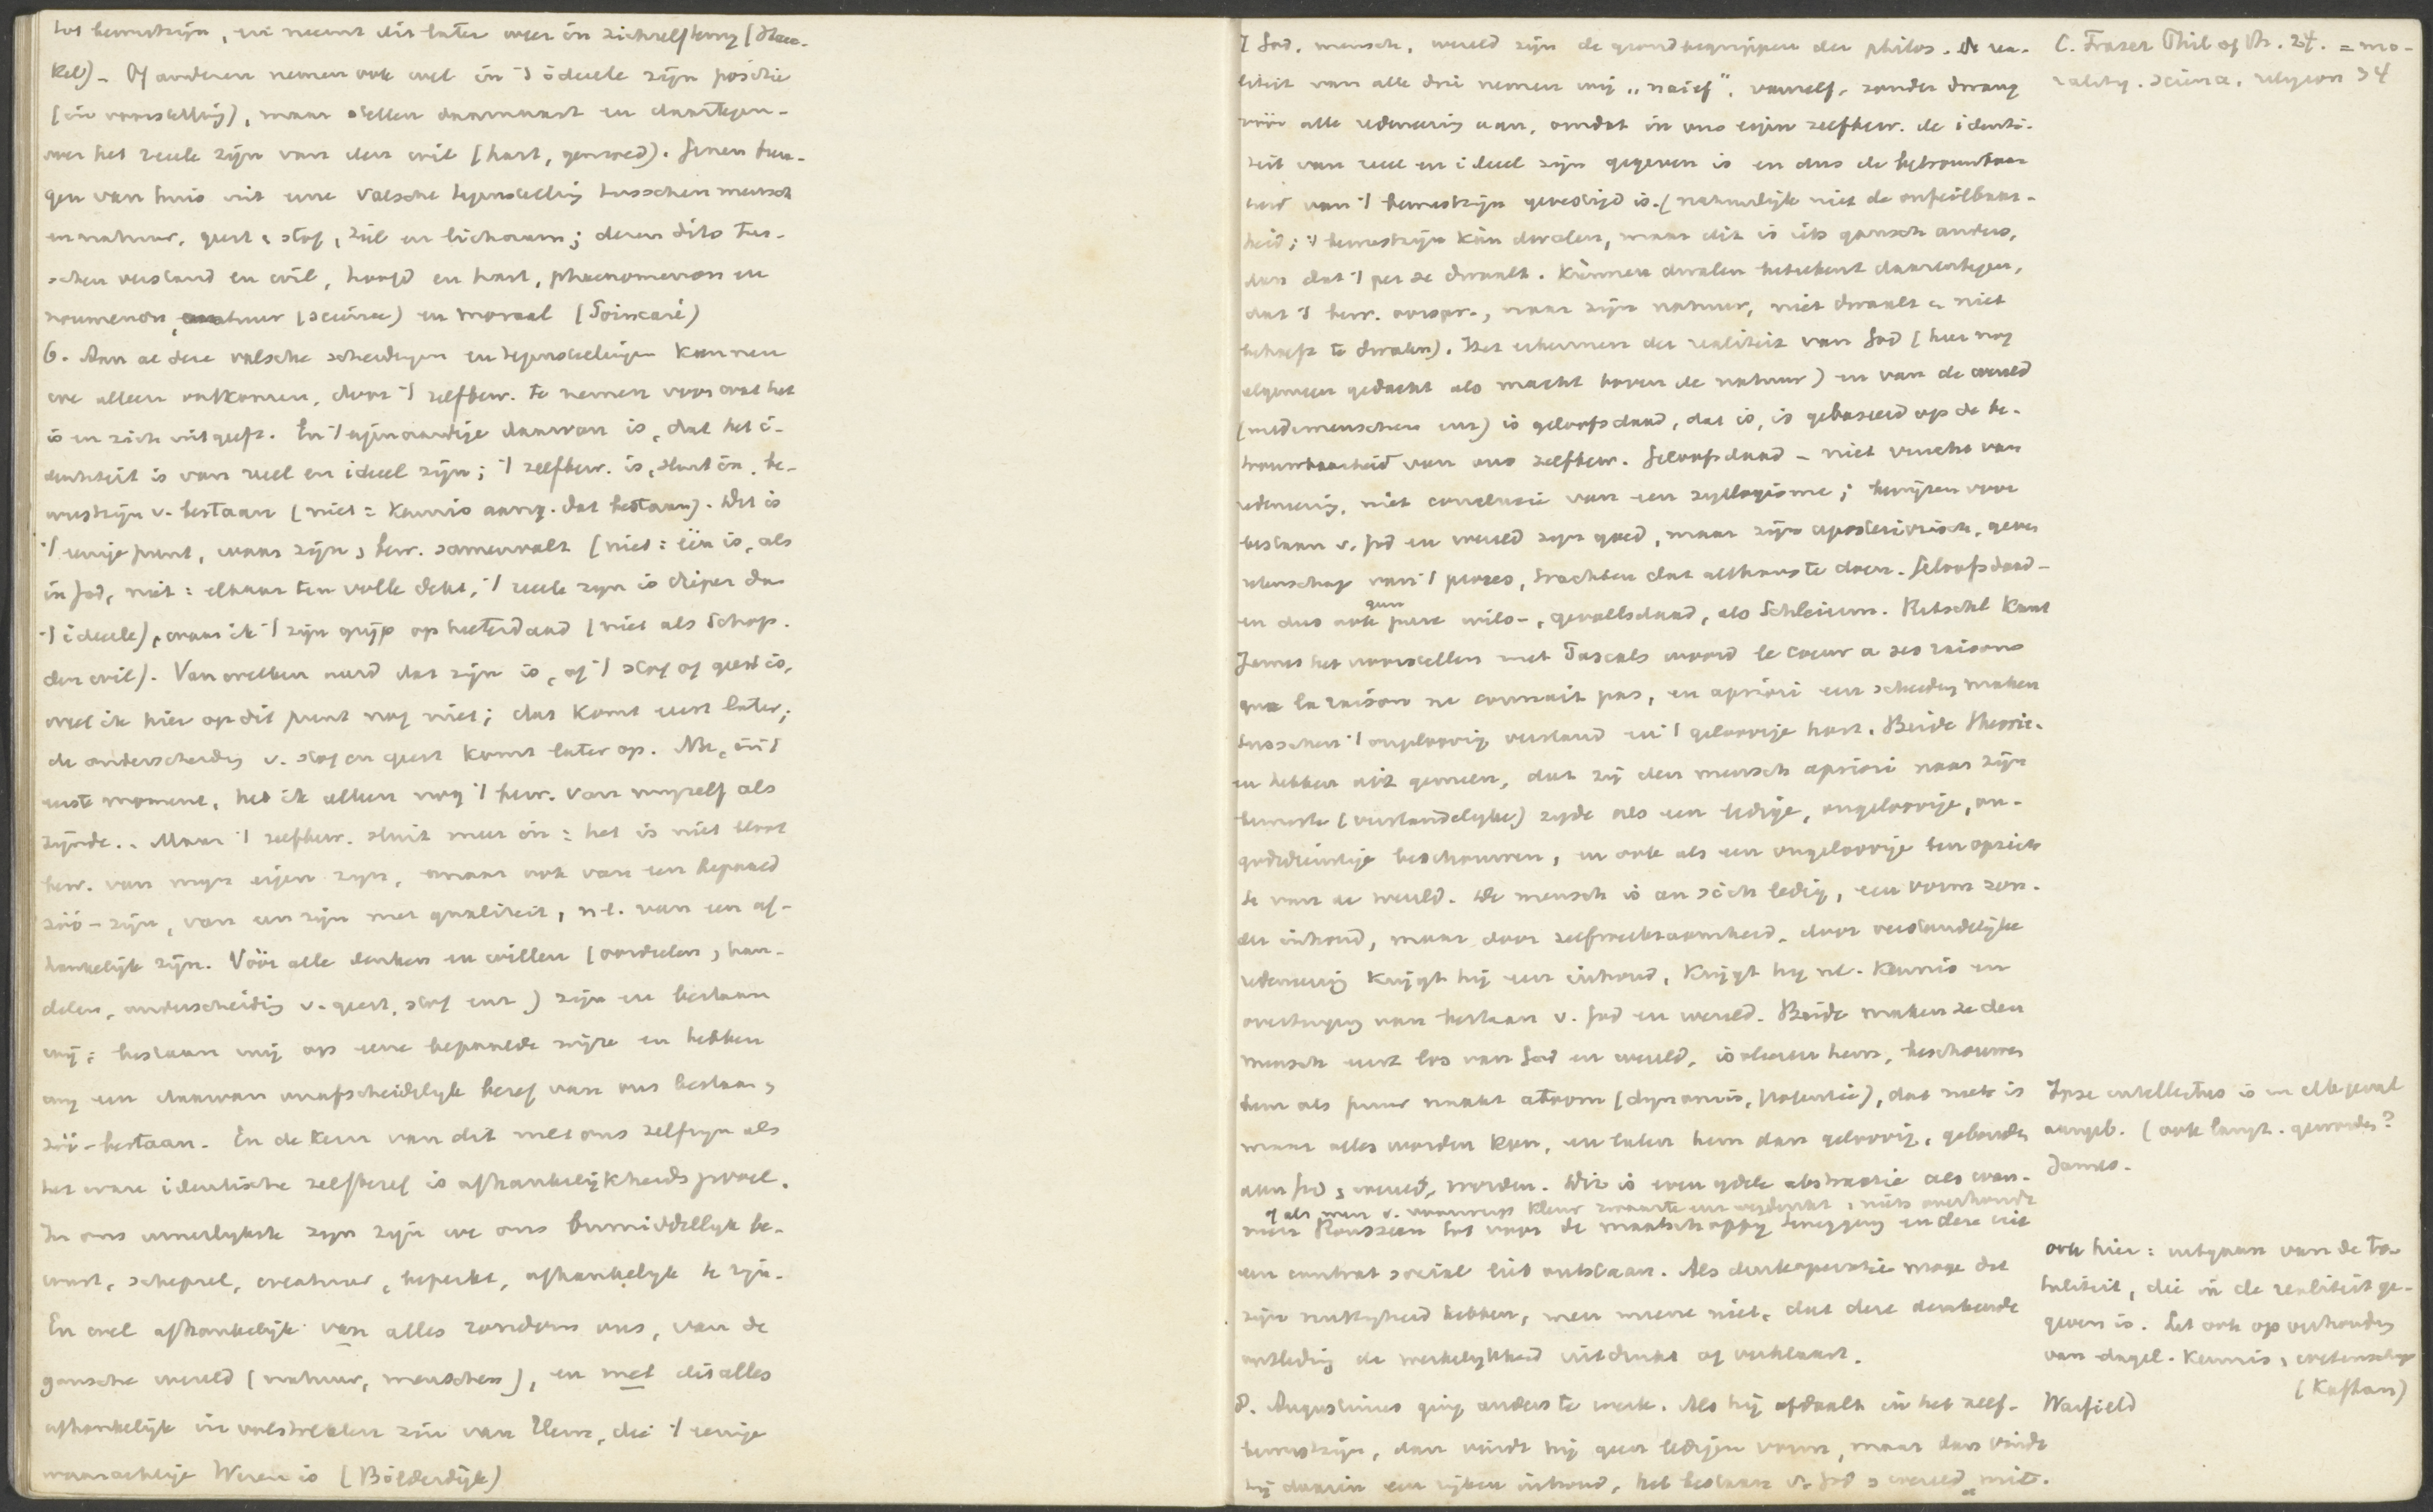 tot bewustzijn, en neemt dit later weer in zichzelf terug (Haec-
kel) – Of anderen nemen ook wel in 't ideele zijn positie
(in voorstelling), maar stellen daarnaast en daartegen-
over het reele zijn van den wil (hart, gemoed). Genen bren-
gen van huis uit eene valsche tegenstelling tusschen mensch
en natuur, geest, stof, ziel en lichaam; dezen dito tus-
schen verstand en wil, hoofd en hart, phaenomenon en
noumenon, natuur (science) en moraal (Poincaré)
6. Aan al deze valsche scheidingen en tegenstellingen kunnen
we alleen ontkomen, door 't zelfbew. te nemen voor wat het
is en zich uitgeeft. En 't eigenaardige daarvan is, dat het i-
dentiteit is van reel en ideel zijn; 't zelfbew. is, sluit in, be-
wustzijn v. bestaan (niet = kennis aang. dat bestaan). Dit is
't eenige punt, waar zijn, bew. samenvalt (niet: één is, als
in God, niet: elkaar ten volle dekt, 't reele zijn is dieper dan
't ideele), waar ik 't zijn grijp op heeterdaad (niet als Schop.
den wil). Van welken aard dat zijn is, of 't stof of geest is,
weet ik hier op dit punt nog niet; dat komt eerst later;
de onderscheiding v. stof en geest komt later op. Nu, in 't
eerste moment, heb ik alleen nog 't bew. van mijzelf als
zijnde. Maar 't zelfbew. sluit meer in: het is niet bloot
bew. van mijn eigen zijn, maar ook van een bepaald
zóó-zijn, van een zijn met qualiteit, n.l. van een af-
hankelijk zijn. Vóór alle denken en willen (oordeelen, han-
delen, onderscheiding v. geest, stof enz.) zijn en bestaan
wij; bestaan wij op eene bepaalde wijze en hebben
wij een daarvan onafscheidelijk besef van ons bestaan,
zóó-bestaan. En de kern van dit met ons zelfzijn als
het ware identische zelfbesef is afhankelijkheidsgevoel.
In ons innerlijkste zijn zijn we ons onmiddellijk be-
wust, schepsel, creatuur, beperkt, afhankelijk te zijn.
En wel afhankelijk van alles rondom ons, van de
gansche wereld (natuur, menschen), en met dit alles
afhankelijk in volstrekten zin van Hem, die 't eenige
waarachtige Wezen is (Bilderdijk)
7 God, mensch, wereld zijn de grondbegrippen der philos. De rea-
liteit van alle drie nemen wij „naief”, vanzelf, zonder dwang
vóór alle redeneering aan, omdat in ons eigen zelfbew. de identi-
teit van reel en ideel zijn gegeven is en dus de betrouwbaar-
heid van 't bewustzijn gewettigd is. (natuurlijk niet de onfeilbaar-
heid; 't bewustzijn kán dwalen, maar dit is iets gansch anders,
dan dat 't per se dwaalt. Kúnnen dwalen beteekent daarentegen,
dat 't bew. oorspr., naar zijn natuur, niet dwaalt en niet
behoeft te dwalen). Het erkennen der realiteit van God (hier nog
algemeen gedacht als macht boven de natuur) en van de wereld
(medemenschen enz) is geloofsdaad, dat is, is gebaseerd op de be-
trouwbaarheid van ons zelfbew. Geloofsdaad – niet vrucht van
redeneering, niet conclusie van een syllogisme; bewijzen voor
bestaan v. God en wereld zijn goed, maar zijn aposteriorisch, geven
rekenschap van 't proces, trachten dat althans te doen. Geloofsdaad –
en dus ook geen pure wils-, gevoelsdaad, als Schleierm. Ritschl Kant
James het voorstellen met Pascals woord le coeur a ses raisons
que la raison ne connait pas, en apriori een scheiding maken
tusschen 't ongeloovig verstand en 't geloovige hart. Beide theorie-
en hebben dit gemeen, dat zij den mensch apriori naar zijn
bewuste (verstandelijke) zijde als een ledige, ongeloovige, on-
godsdienstige beschouwen, en ook als een ongeloovige ten opzich-
te van de wereld. De mensch is an sich ledig, een vorm zon-
der inhoud, maar door zelfwerkzaamheid, door verstandelijke
redeneering krijgt hij een inhoud, krijgt hij nl. kennis en
overtuiging van bestaan v. God en wereld. Beide maken ze den
mensch eerst los van God en wereld, isoleeren hem, beschouwen
hem als puur naakt atoom (dynamis, potentie), dat niets is
maar alles worden kan, en laten hem dan geloovig, gebonden
aan God, wereld, worden. Dit is even ydele abstractie als wan-
of als men v. voorwerp kleur zwaarte enz wegdenkt, niets overhoudt
neer Rousseau tot voor de maatschappij terugging en deze uit
een contrat social liet ontstaan. Als denkoperatie moge dat
zijn nuttigheid hebben, men meene niet, dat deze denkende
ontleding de werkelijkheid uitdrukt of verklaart.
8. Augustinus ging anders te werk. Als hij afdaalt in het zelf-
bewustzijn, dan vindt hij geen ledigen vorm, maar dan vindt
hij daarin een rijken inhoud, het bestaan v. God, wereld mits.
C. Fraser Phil of Th. 24. = mo-
rality. science, religion 34
Ipse intellectus is in elk geval
aangeb. (ook langz. geworden?
James.
ook hier: uitgaan van de to-
taliteit, die in de realiteit ge-
geven is. Let ook op verhouding
van dagel. kennis, wetenschap
(Kaftan)
Warfield